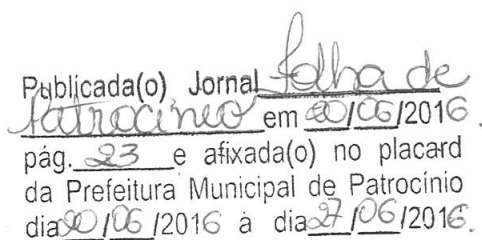 Publicada(o) Jornal Folha de
Patrocínio em 20/06/2016.
pág. 23 e afixada(o) no placard
da Prefeitura Municipal de Patrocínio
dia 20/06/2016 à dia 27/06/2016.